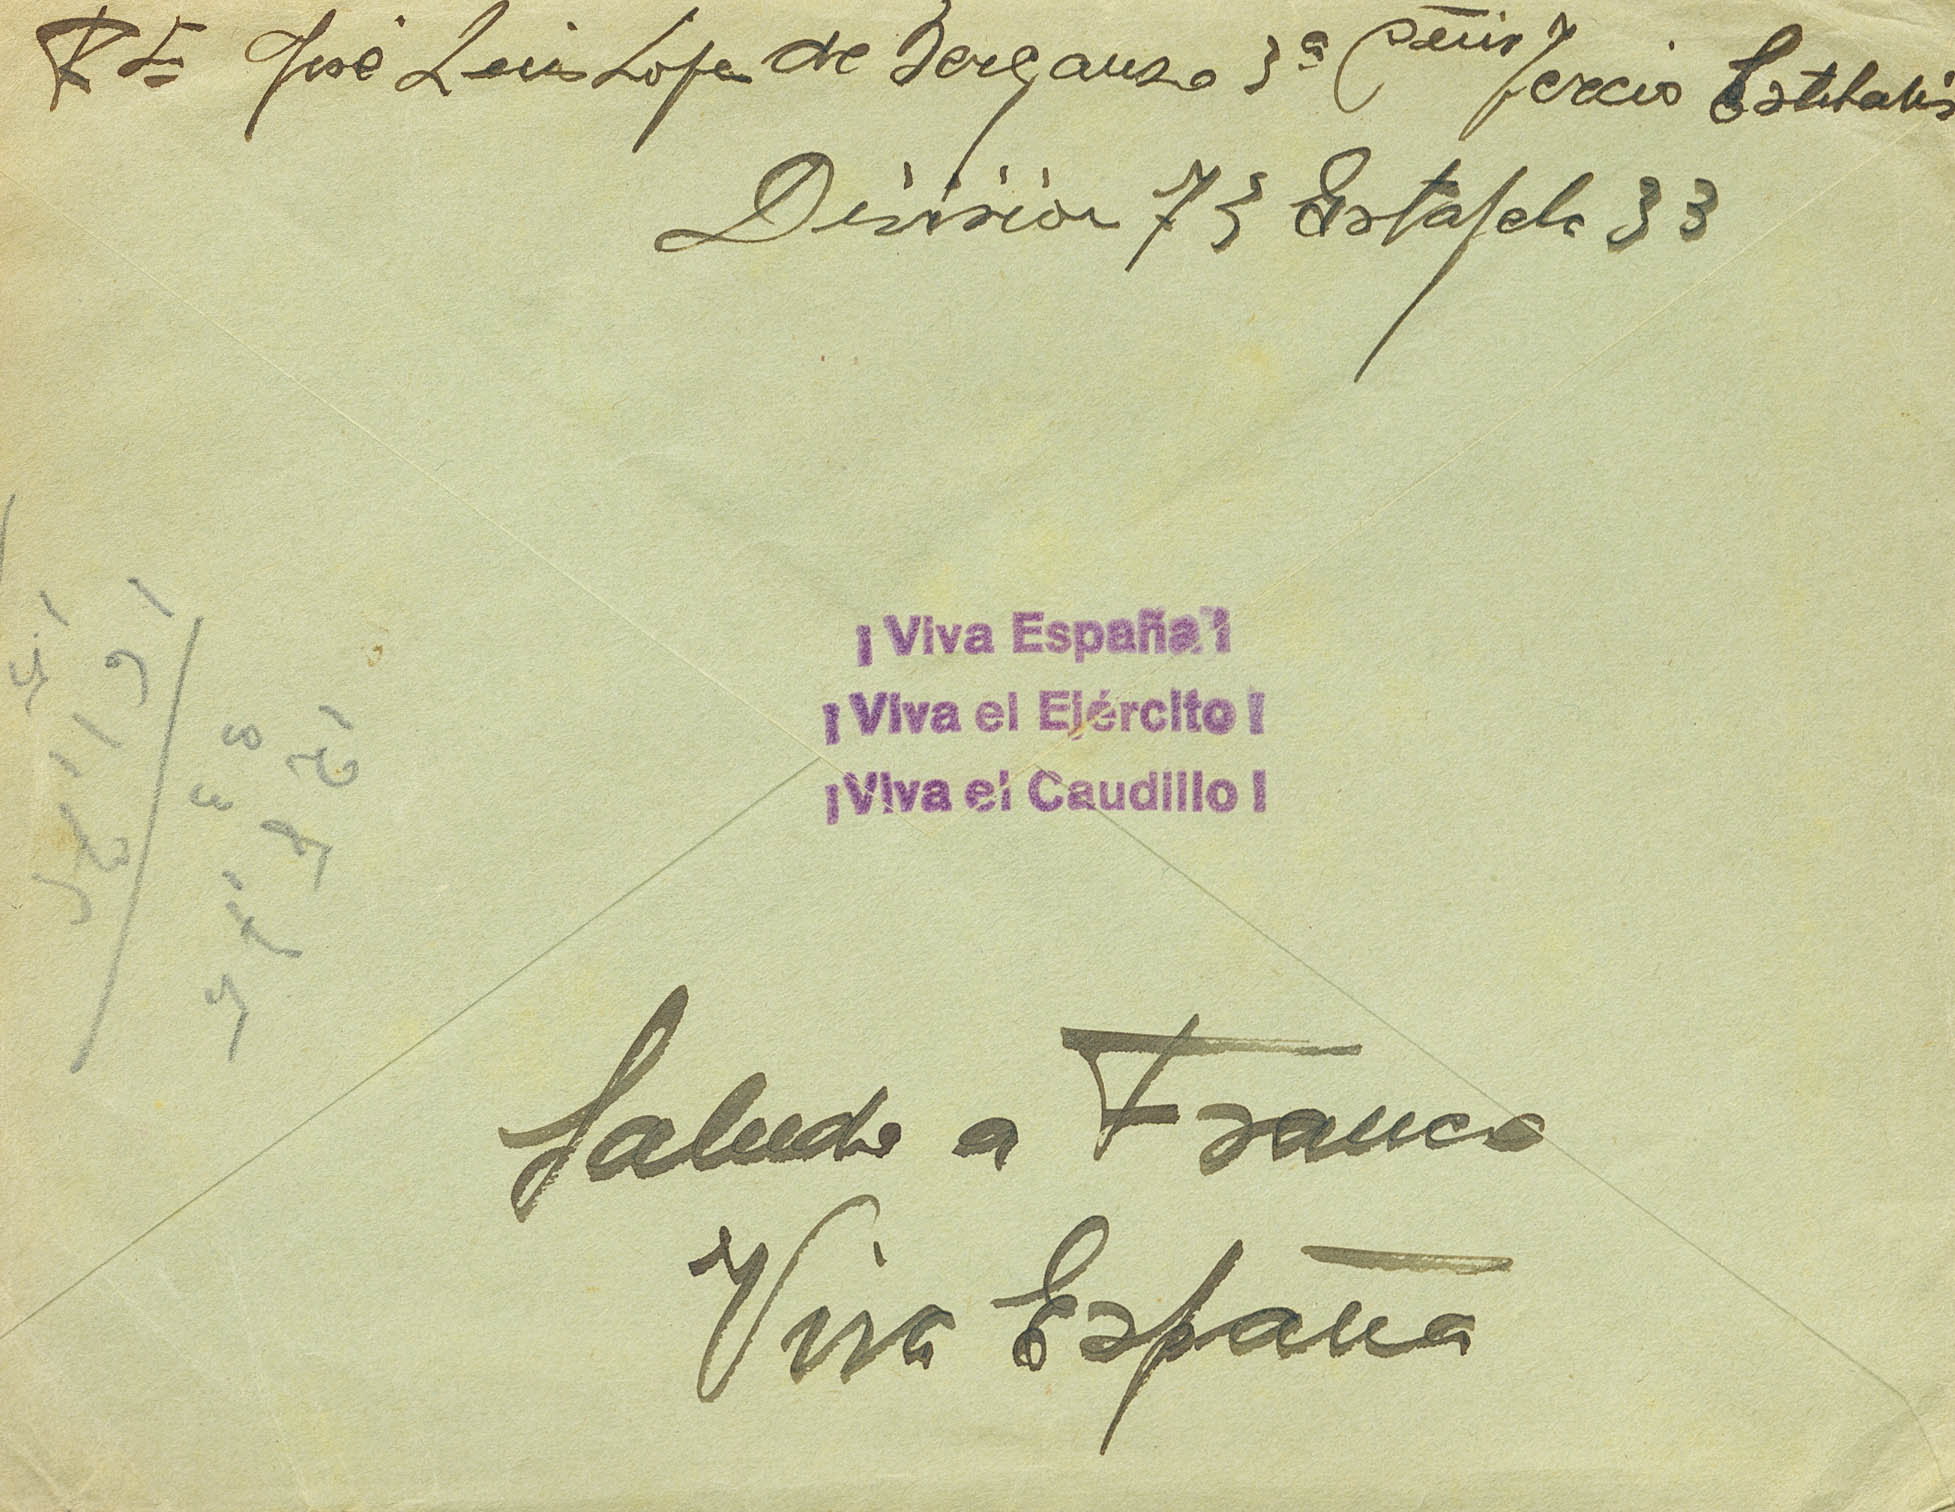 Rte José Luis Lopez de Berganzo 3ª Cª Tercio Estibaliz
Division 73 Estafeta 33
¡Viva España!
¡Viva el Ejército!
¡Viva el Caudillo!
Saludo a Franco
Viva España